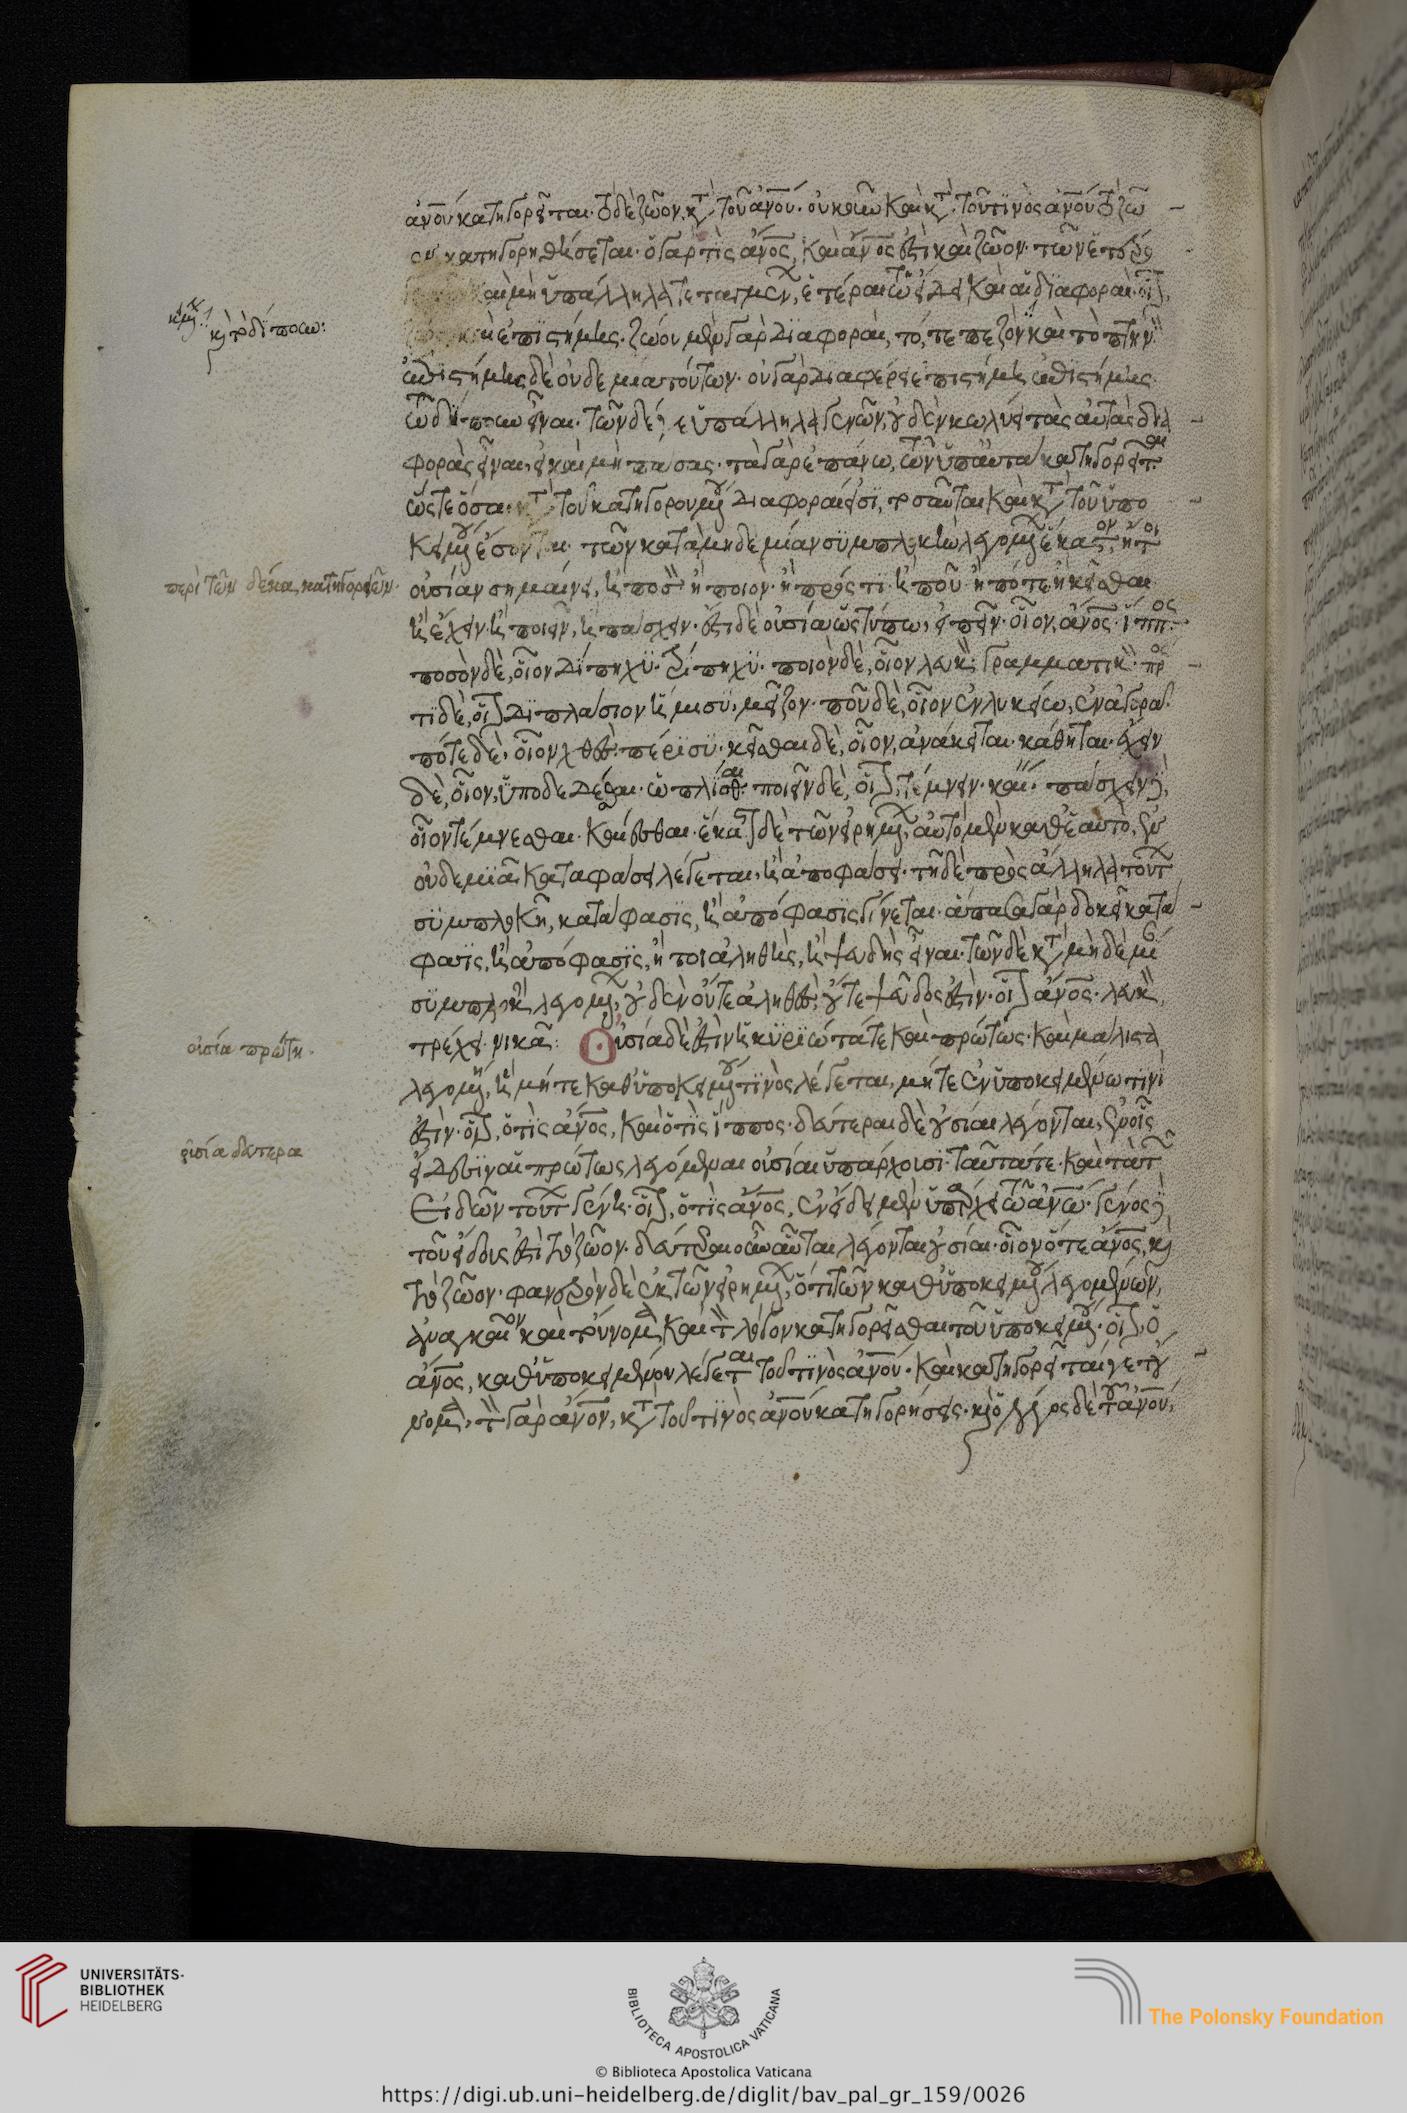 ἀνου κατηγορεῖται· τὸ δὲ ζῶον, κτ τοῦ ἀνου· οὐκοῦν καὶ κτ τοῦ τινὸς ἀνου τὸ ζῶ
ον κατηγορηθήσεται· ὁ γάρ τὶς ἄνος, καὶ ἄνος ἐστὶ καὶ ζῶον· τῶν ἑτερο
καὶ μὴ ὑπάλληλα τεταγμένων, ἕτεραι τῷ εἴδει καὶ αἱ διαφοραὶ· οἷον,
καὶ ἐπιστήμης· ζώου μὲν γὰρ διαφοραὶ, τό, τε πεζὸν καὶ τὸ πτηνόν·
κείμενον: καὶ τὸ δίπουν:
ἐπιστήμης δὲ οὐδεμία τούτων· οὐ γὰρ διαφέρει ἐπιστήμη ἐπιστήμης·
τῷ δίπουν εἶναι· τῶν δέ γε ὑπάλληλα γενῶν, οὐδὲν κωλύει τὰς αὐτὰς δια
φορὰς εἶναι, εἰ καὶ μὴ πάσας· τὰ γὰρ ἐπάνω, τῶν ὑπ' αὐτὰ κατηγορεῖται
ὥστε ὅσαι κτ τοῦ κατηγορουμένου διαφοραί εἰσι, τοσαῦται καὶ κτ τοῦ ὑπο
κειμένου ἔσονται· τῶν κατὰ μηδεμίαν συμπλοκὴν λεγομένων ἕκαστον, ἤτοι
περὶ τῶν δέκα κατηγοριῶν·
οὐσίαν σημαίνει, ἢ ποσὸν ἢ ποιὸν· ἢ πρός τι· ἢ ποῦ· ἢ πότε ἢ κεῖσθαι
ἢ ἔχειν· ἢ ποιεῖν, ἢ πάσχειν· ἔστι δὲ οὐσία ὡς τύπω, εἰπεῖν· οἷον, ἄνος· ἵππος·
ποσὸν δὲ, οἷον δίπηχυ· τρίπηχυ· ποιὸν δὲ, οἷον λευκὸν· γραμματικὸν· πρός
τι δὲ, οἷον διπλάσιον ἥμισυ, μεῖζον· ποῦ δὲ, οἷον ἐν λυκείω, ἐν ἀγορᾶ·
πότε δὲ, οἷον χθὲς· πέρισυ· κεῖσθαι δὲ, οἷον, ἀνάκειται· κάθηται· ἔχειν
δὲ, οἷον, ὑποδεδέσθαι· ὡπλίσθαι· ποιεῖν δὲ, οἷον, τέμνειν· καίειν· πάσχειν δὲ,
οἷον τέμνεσθαι· καίεσθαι· ἕκαστον δὲ τῶν εἰρημένων, αὐτὸ μὲν καθ' ἑαυτὸ, ἐν
οὐδεμιᾶ καταφάσει λέγεται, ἢ ἀποφάσει· τῆ δὲ πρὸς ἄλληλα τούτων
συμπλοκῆ, κατάφασις, ἢ ἀπόφασις γίνεται· ἅπασα γὰρ δοκεῖ κατά
φασις, ἢ ἀπόφασις, ἤτοι ἀληθὴς, ἢ ψευδὴς εἶναι· τῶν δὲ κτ μηδεμίαν
συμπλοκὴν λεγομένων, οὐδὲν οὔτε ἀληθὲς, οὔτε ψεῦδος ἐστὶν· οἷον ἄνος· λευκὸν,
οὐσία πρώτη·
τρέχει· νικᾶ: Οὐσία δὲ ἐστὶν ἡ κυριώτατά τε καὶ πρώτως· καὶ μάλιστα
λεγομένη, ἢ μήτε καθ' ὑποκειμένου τινὸς λέγεται, μήτε ἐν ὑποκειμένω τινὶ
ἐστὶν· οἷον, ὁ τὶς ἄνος, καὶ ὁ τὶς ἵππος· δεύτεραι δὲ οὐσίαι λέγονται, ἐν οἷς
οὐσία δευτέρα
εἴδεσιν αἱ πρώτως λεγόμεναι οὐσίαι ὑπάρχουσι· ταῦτά τε· καὶ τὰ τῶν
εἰδῶν τούτων γένη· οἷον, ὁ τὶς ἄνος, ἐν εἴδει μὲν ὑπάρχει τῷ ἀνω· γένος δὲ
τοῦ εἴδους ἐστὶ τὸ ζῶον· δεύτεραι οὖν αὗται λέγονται οὐσίαι· οἷον ὅ τε ἄνος, καὶ
τὸ ζῶον· φανερὸν δὲ ἐκ τῶν εἰρημένων, ὅτι τῶν καθ' ὑποκειμένου λεγομένων,
ἀναγκαῖον καὶ τοὔνομα καὶ τὸν λόγον κατηγορεῖσθαι τοῦ ὑποκειμένου· οἷον, ὁ
ἄνος, καθ' ὑποκειμένου λέγεται τοῦ τινὸς ἀνου· καὶ κατηγορεῖταί γε τοὔ
νομα, τὸν γὰρ ἄνον, κτ τοῦ τινὸς ἀνου κατηγορήσεις· καὶ ὁ λόγος δὲ τοῦ ἀνου,
UNIVERSITÄTS-
BIBLIOTHEK
HEIDELBERG
BIBLIOTECA APOSTOLICA VATICANA
The Polonsky Foundation
© Biblioteca Apostolica Vaticana
https://digi.ub.uni-heidelberg.de/diglit/bav_pal_gr_159/0026